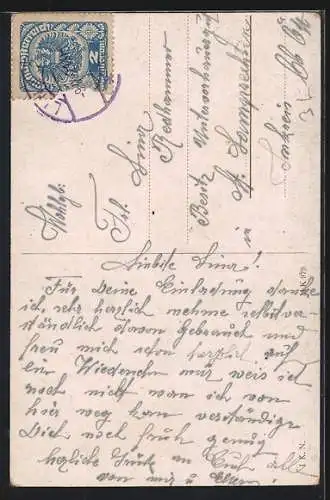 Deutschösterreich
2
Wohlgb.
Frl. Lina
Besitz Untervorhauser
St. Lamprechten
in
Liebste Lina!
Für Deine Einladung danke
ich sehr herzlich nehme selbstver-
ständlich davon Gebrauch und
freu mich schon herzlich auf
ein Wiedersehn nur weis ich
noch nicht wan ich von
hier weg kan verständige
Dich noch früh genug
herzliche Grüße an Euch alle
von mir u Eltern!